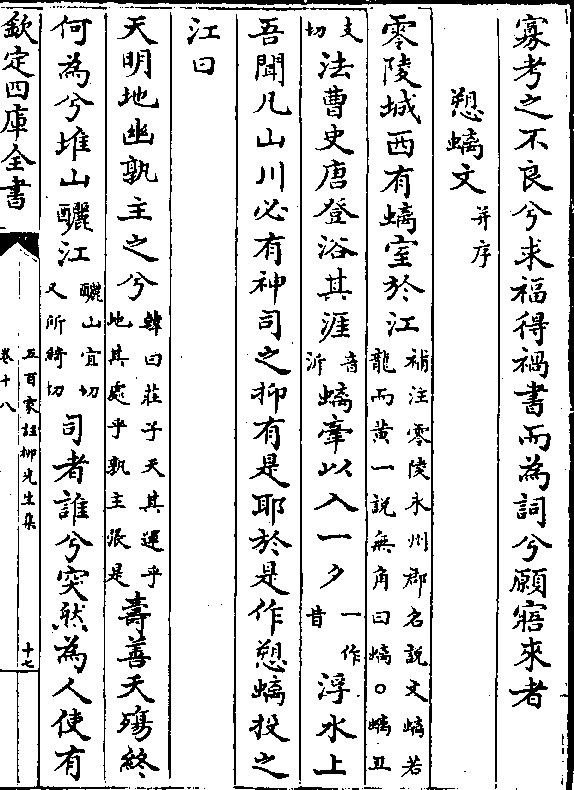 寡考之不良兮求福得禍書而為詞兮願寤來者
愬螭文并序
零陵城西有螭室於江補注零陵永州郡名說文螭若
龍而黃一說無角曰螭○螭丑
支
切法曹史唐登浴其涯音
沂螭牽以入一夕一作
昔浮水上
吾聞凡山川必有神司之抑有是耶於是作愬螭投之
江曰
天明地幽孰主之兮韓曰莊子天其運乎
地其處乎孰主張是壽善夭殤終
何為兮堆山釃江釃山宜切
又所綺切司者誰兮突然為人使有
欽定四庫全書
五百家註柳先生集
卷十八
十七